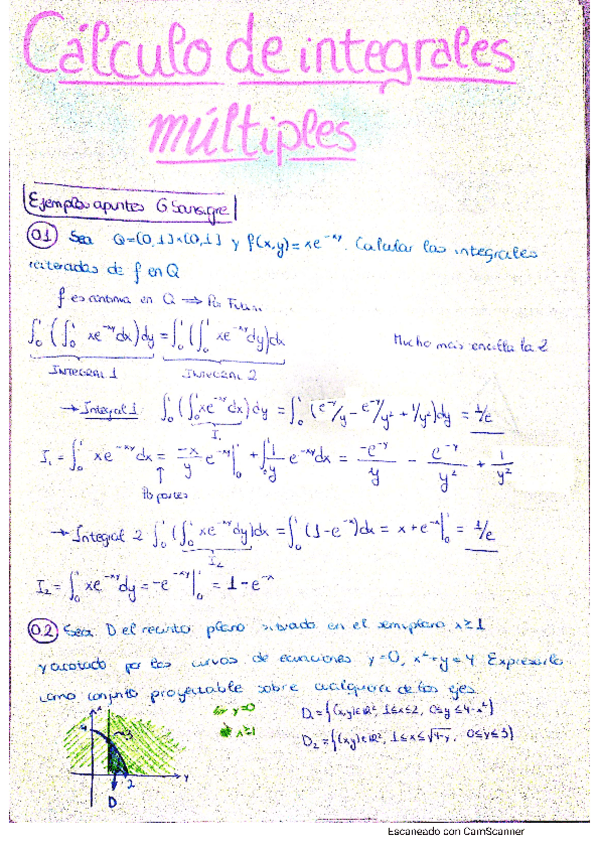 Cálculo de integrales
múltiples
Ejemplos apuntes G Sansigre
0.1 Sea Q=[0,1]×[0,1] y f(x,y)=xe^{-xy}. Calcular las integrales
reiteradas de f en Q
f es continua en Q ⇒ Por Fubini
∫₀¹(∫₀¹ xe^{-xy}dx)dy = ∫₀¹(∫₀¹ xe^{-xy}dy)dx Mucho más la 2
INTEGRAL 1 INTEGRAL 2
→ Integral 1 ∫₀¹(∫₀¹ xe^{-xy}dx)dy = ∫₀¹(e^{-y}/y - e^{-y}/y² + 1/y²)dy = 1/e
I₁
I₁ = ∫₀¹ xe^{-xy}dx = -x/y e^{-xy}|₀¹ + ∫₀¹ 1/y e^{-xy}dx = -e^{-y}/y - e^{-y}/y² + 1/y²
↑
Por partes
→ Integral 2 ∫₀¹(∫₀¹ xe^{-xy}dy)dx = ∫₀¹(1-e^{-x})dx = x+e^{-x}|₀¹ = 1/e
I₂
I₂ = ∫₀¹ xe^{-xy}dy = -e^{-xy}|₀¹ = 1-e^{-x}
0.2 Sea D el recinto plano situado en el semiplano x≥1
y acotado por las curvas de ecuaciones y=0, x²+y=4. Expresarlo
como conjunto proyectable sobre cualquiera de los ejes.
y=0
x≥1
D₁={(x,y)∈ℝ², 1≤x≤2, 0≤y≤4-x²}
D₂={(x,y)∈ℝ², 1≤x≤√4-y, 0≤y≤3}
4
3
2
D
Escaneado con CamScanner